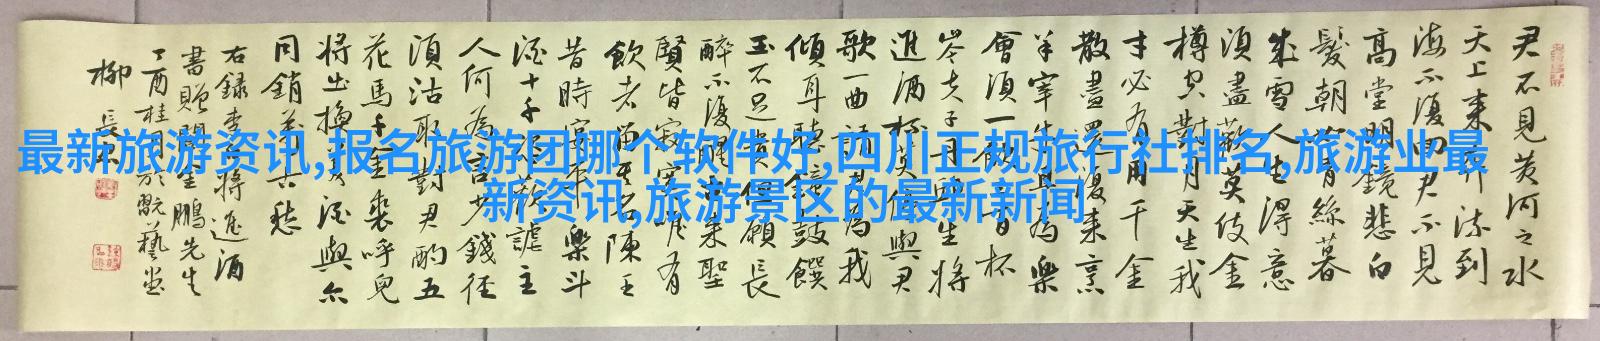 最新旅游资讯,报名旅游团哪个软件好,四川正规旅行社排名,旅游业最
新资讯,旅游景区的最新新闻
君不見黃河之水
天上來奔流到
海不復回君不見
高堂明鏡悲白
髮朝如青絲暮
成雪人生得意
須盡歡莫使金
樽空對月天生我
才必有用千金
散盡還復來烹
羊宰牛且為樂
會須一飲三百杯
岑夫子丹丘生將
進酒杯莫停與君
歌一曲請君為我
傾耳聽鐘鼓饌
玉不足貴但願長
醉不復醒古來聖
賢皆寂寞唯有
飲者留其名陳王
昔時宴平樂斗
酒十千恣歡謔主
人何為言少錢徑
須沽取對君酌五
花馬千金裘呼兒
將出換美酒與尔
同銷萬古愁
右録李白將進酒
書贈鵬先生
丁酉桂月於翫藝堂
柳長